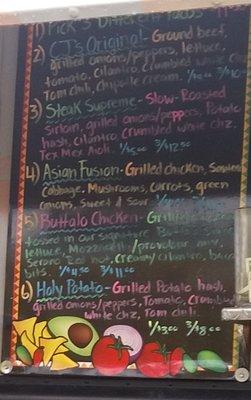 1) Pick 3 Different Tacos
2) CJ's Original - Ground beef,
grilled onions/peppers, lettuce,
tomato, Cilantro, Crumbled white chz
Tom chili, chipotle cream. 1/$4.00 3/$10
3) Steak Supreme - Slow-Roasted
Sirloin, grilled onions/peppers, Potato
hash, cilantro, Crumbled white chz,
Tex Mex Aioli. 3/$12.50
4) Asian Fusion - Grilled chicken,
Cabbage, Mushrooms, Carrots, green
onions, Sweet & Sour
5) Buffalo Chicken - Grilled
tossed in our signature
lettuce, Mozzarella/provolone mix,
Serano Red hot, Creamy cilantro, bacon
bits. 3/$11.00
6) Holy Potato - Grilled Potato hash,
grilled onions/peppers, Tomato, Crumbled
white chz, Tom chili.
1/$3.00 3/$8.00